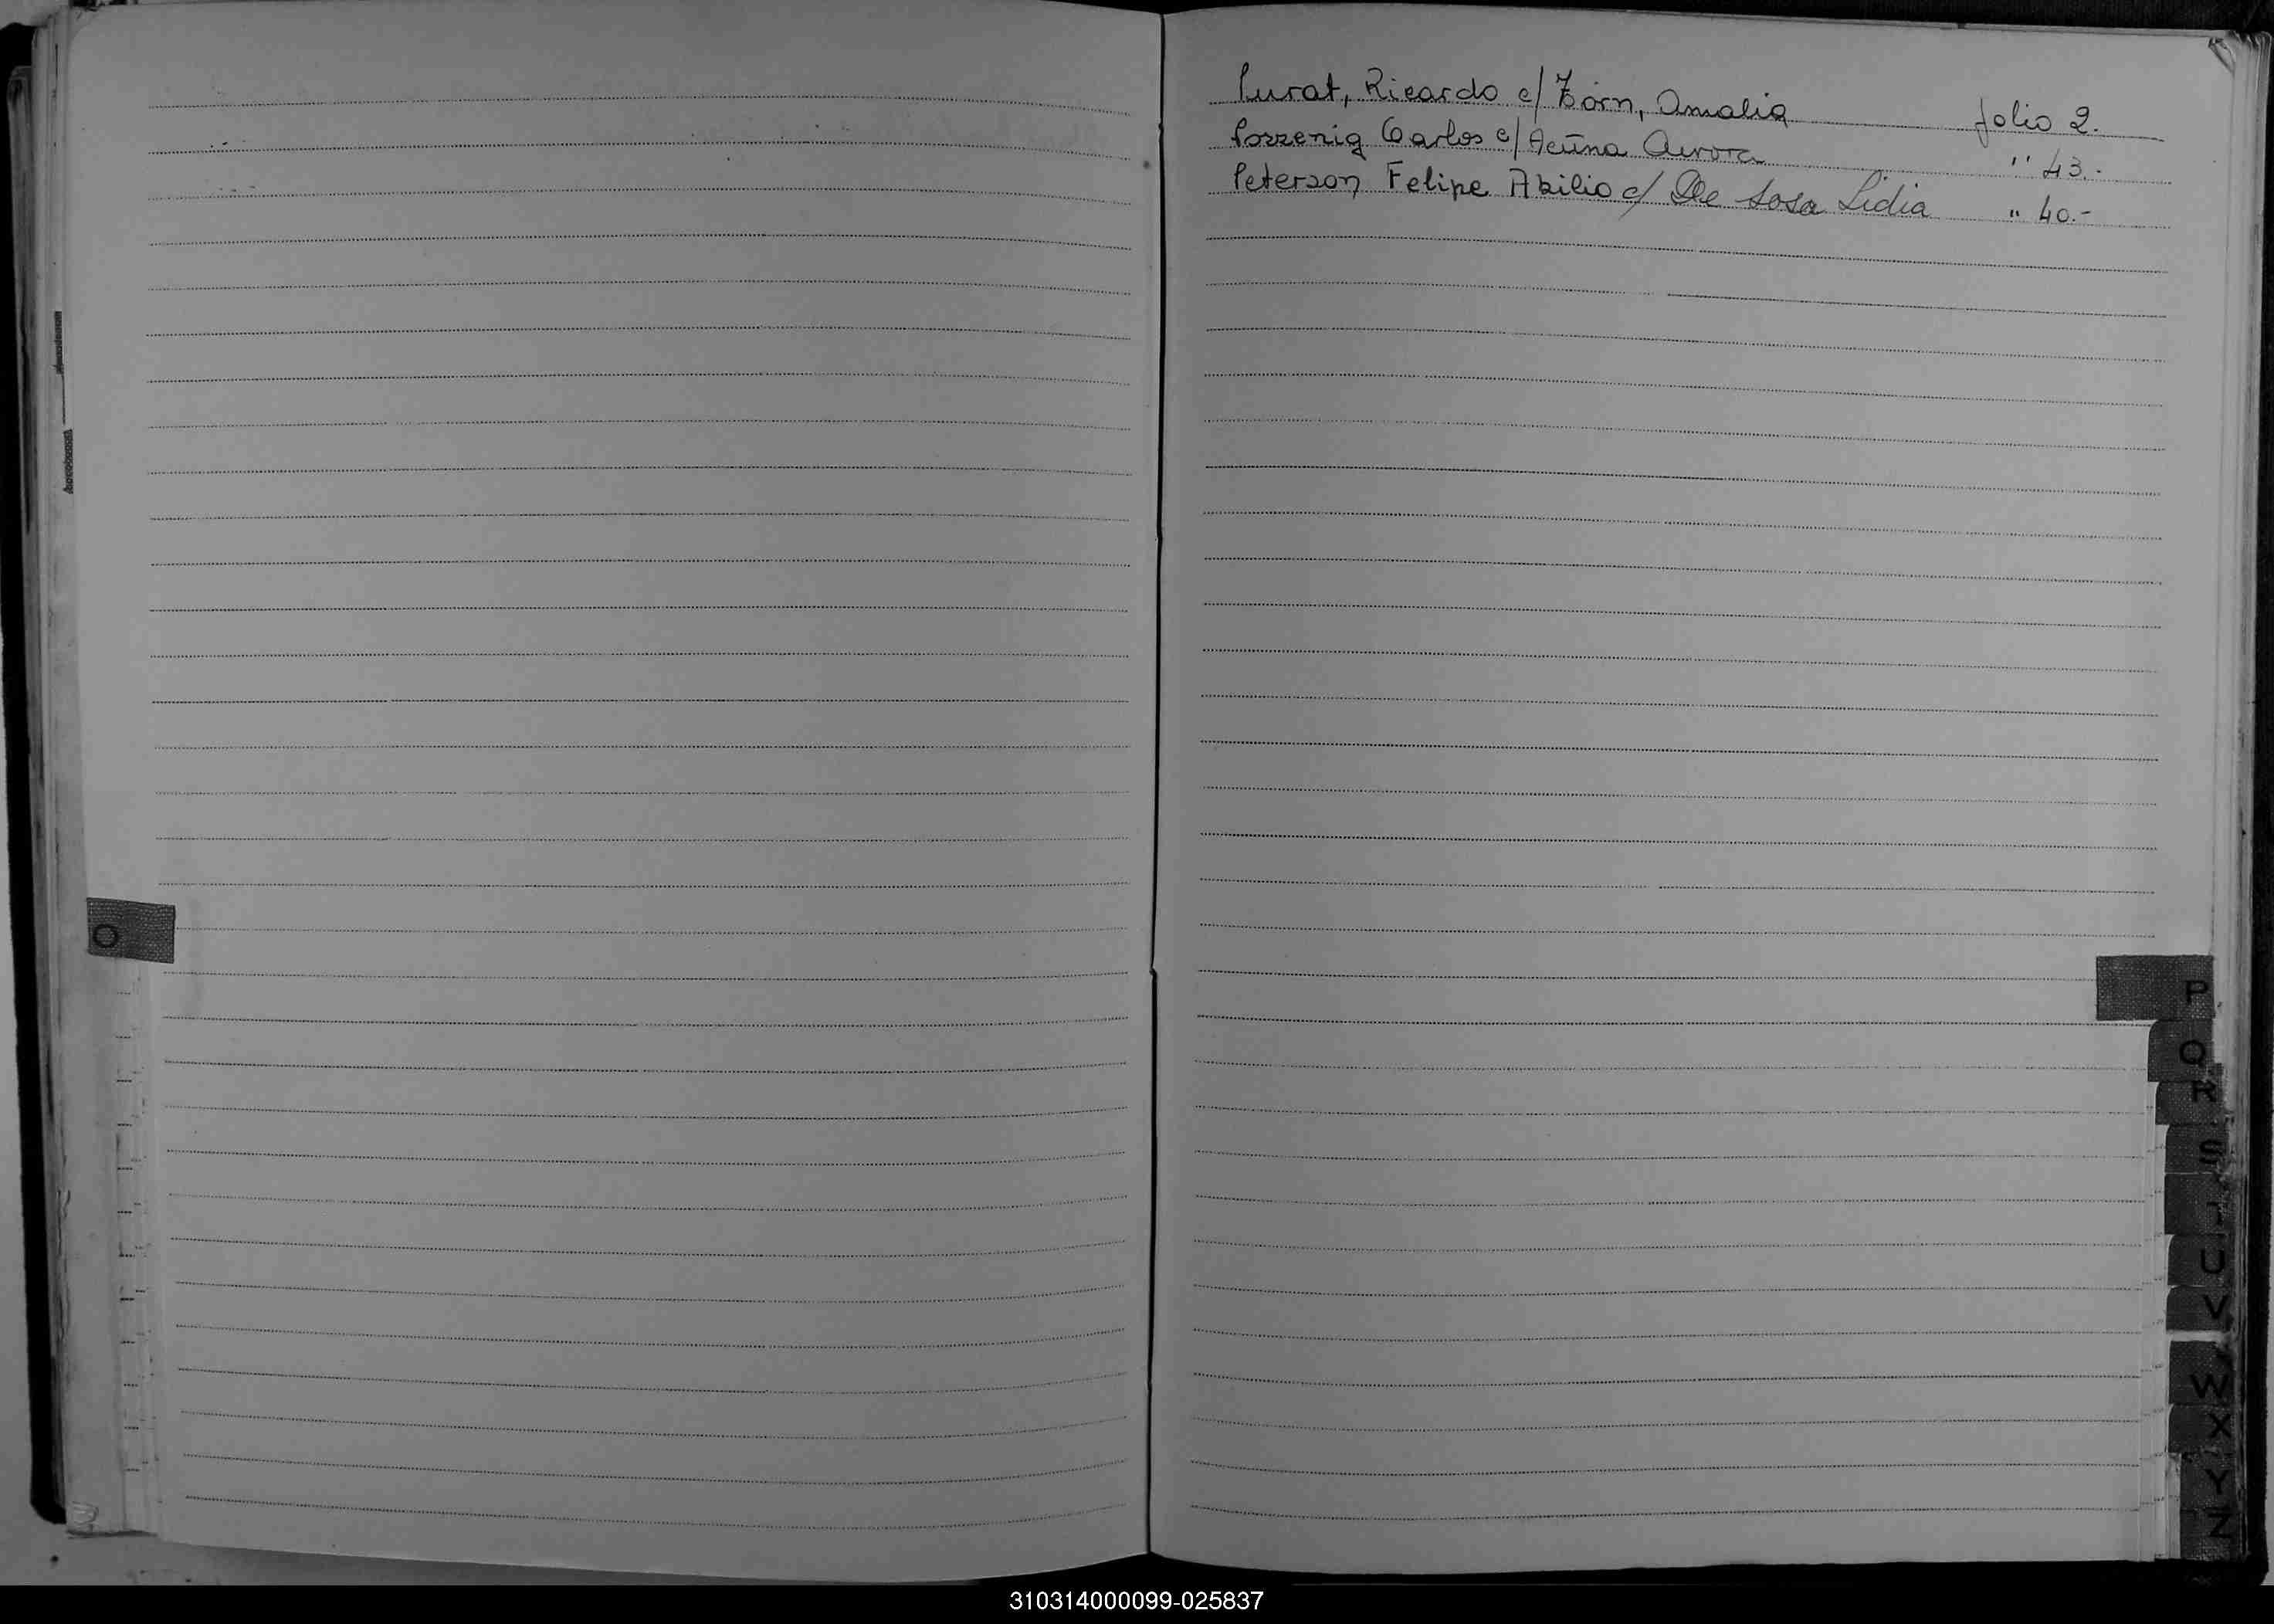 Purat, Ricardo c/ Zorn, Amalia folio 2.
Possenig Carlos c/ Acuña Aurora '' 43.-
Peterson Felipe Abilio c/ De Sosa Lidia " 40.-
O
P
Q
R
S
T
U
V
W
X
Y
Z
310314000099-025837